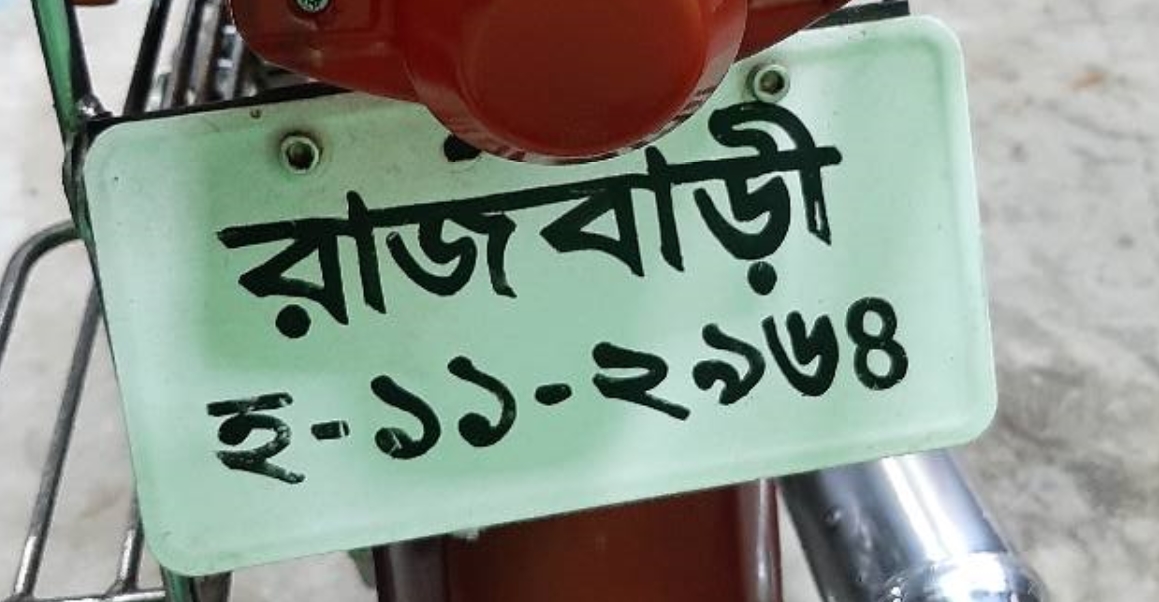 রাজবাড়ী
হ-১১-২৯৬৪